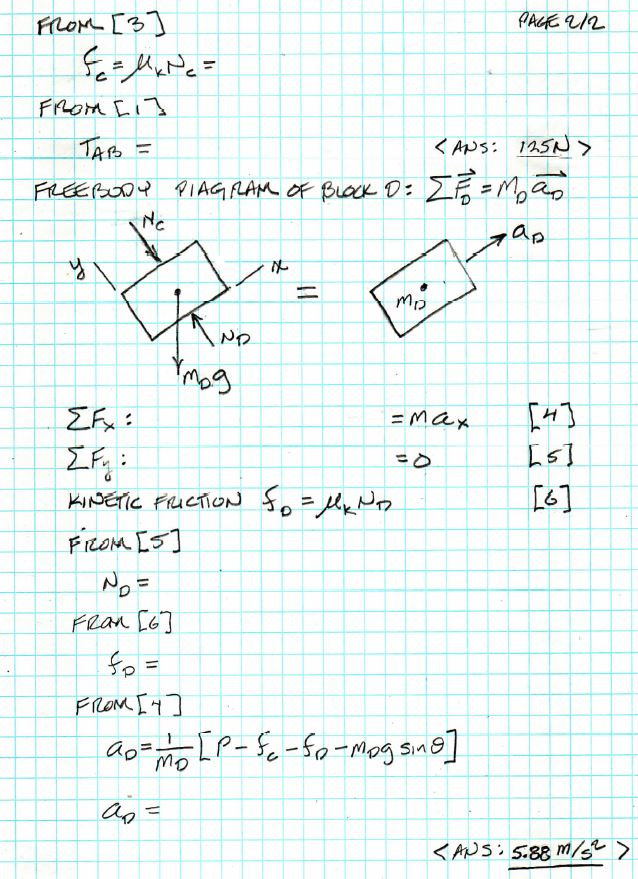 PAGE 2/2
FROM [3]
f_c = μ_k N_c =
FROM [1]
T_AB =
<ANS: 125N>
FREEBODY DIAGRAM OF BLOCK D: ΣF⃗_D = M_D a⃗_D
N_c
y
x
N_D
m_D g
=
m_D
a_D
ΣF_x : = m a_x [4]
ΣF_y : = 0 [5]
KINETIC FRICTION f_D = μ_k N_D [6]
FROM [5]
N_D =
FROM [6]
f_D =
FROM [4]
a_D = 1/m_D [P - f_c - f_D - m_D g sin θ]
a_D =
<ANS: 5.88 m/s² >